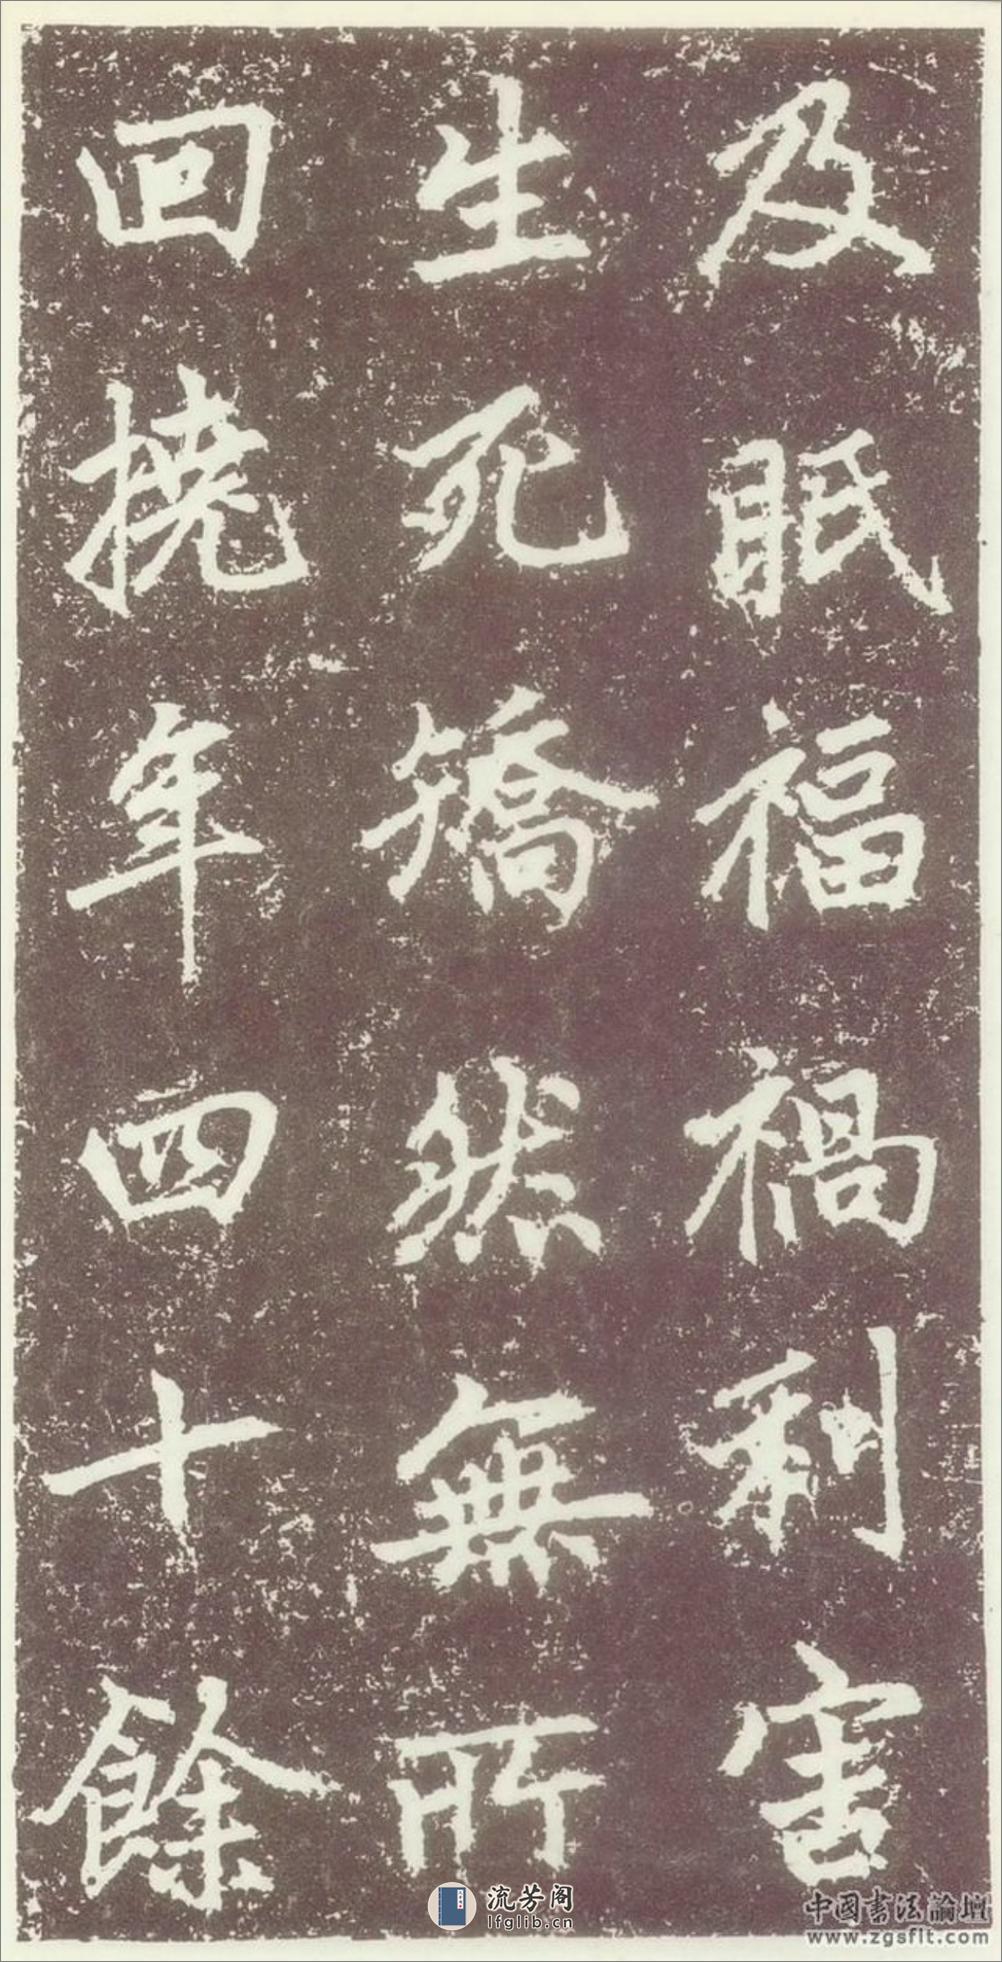 及眂福禍利害
生死矯然無所
回撓年四十餘
流芳阁
lfglib.cn
中國書法論壇
www.zgsfit.com